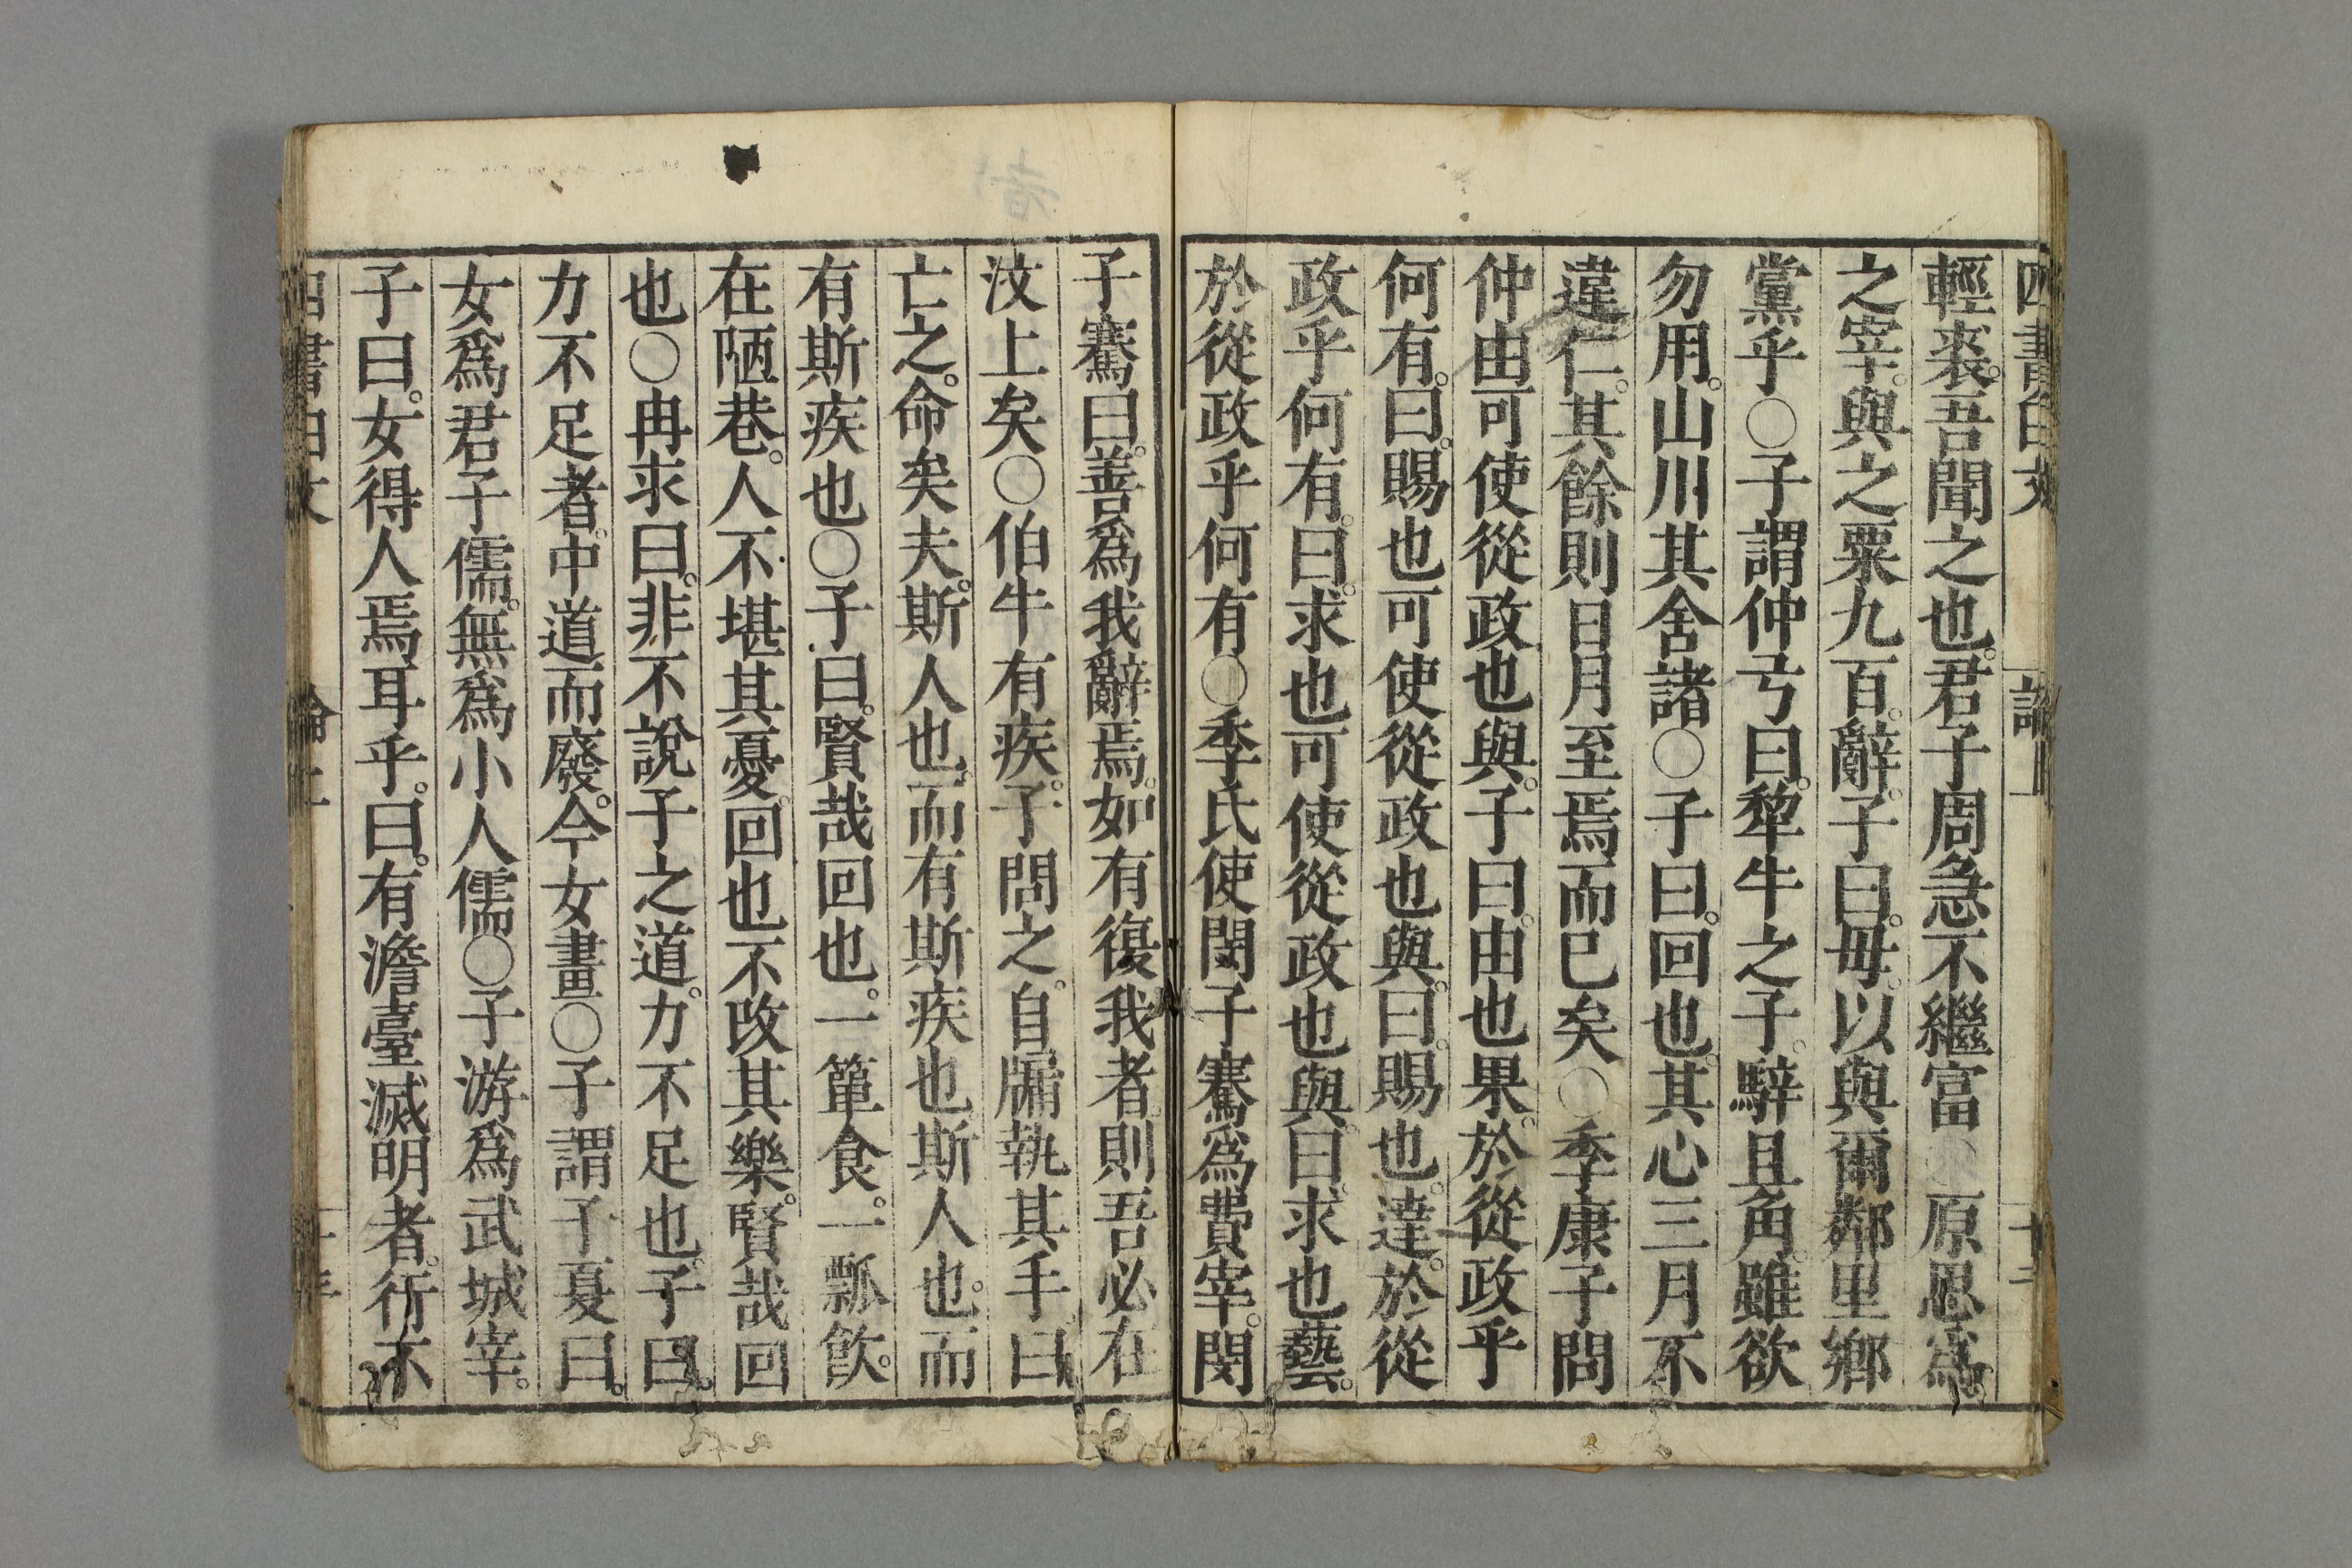 四書白文
論上
輕裘。吾聞之也。君子周急不繼富〇原思爲
之宰。與之粟九百。辭。子曰。毋。以與爾鄰里鄉
黨乎〇子謂仲弓曰。犂牛之子。騂且角。雖欲
勿用。山川其舍諸〇子曰。回也。其心三月不
違仁。其餘則日月至焉而已矣〇季康子問
仲由可使從政也與。子曰。由也果。於從政乎
何有。曰。賜也可使從政也與。曰。賜也。達。於從
政乎何有。曰。求也可使從政也與。曰。求也藝。
於從政乎何有〇季氏使閔子騫爲費宰。閔
子騫曰。善爲我辭焉。如有復我者。則吾必在
汶上矣〇伯牛有疾。子問之。自牖執其手曰
亡之。命矣夫。斯人也。而有斯疾也。斯人也。而
有斯疾也〇子曰。賢哉回也。一簞食。一瓢飲。
在陋巷。人不堪其憂。回也不改其樂。賢哉回
也〇冉求曰。非不說子之道。力不足也。子曰。
力不足者。中道而廢。今女畫〇子謂子夏曰。
女爲君子儒。無爲小人儒〇子游爲武城宰。
子曰。女得人焉耳乎。曰。有澹臺滅明者。行不
四書白文